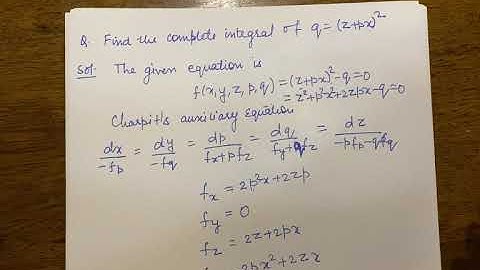 Q. Find the complete integral of q = (z+px)²
Sol. The given equation is
f(x,y,z,p,q) = (z+px)² - q = 0
= z² + p²x² + 2zpx - q = 0
Charpit's auxiliary equation
dx/-fp = dy/-fq = dp/fx+pfz = dq/fy+qfz = dz/-pfp-qfq
fx = 2p²x + 2zp
fy = 0
fz = 2z + 2px
2px² + 2zx